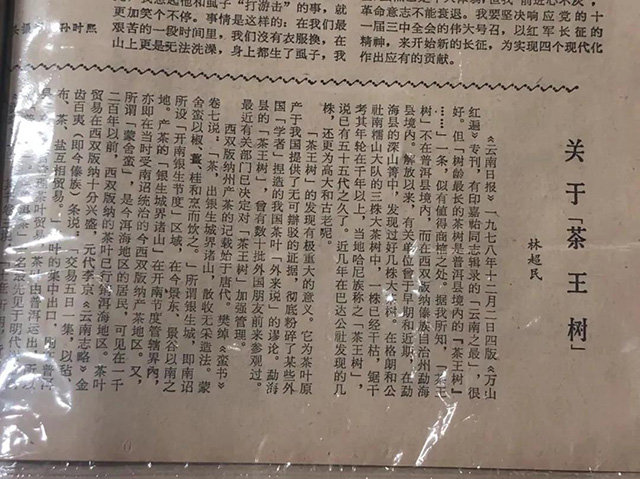 孙时熙
想起他和虱子"打游击"的事，就
更加笑个不停。事情是这样的：在我们最
艰苦的一段时间里，我们没有衣服换，在
山上更是无法洗澡，身上都生了虱子，我
革命意志不能衰退。我要坚决响应党的十
一届三中全会的伟大号召，以红军长征的
精神，来开始新的长征，为实现四个现代化
作出应有的贡献。
关于「茶王树」
林超民
《云南日报》一九七八年十二月二日四版《万山
红遍》专刊，有印嘉祐同志辑录的《云南之最》，很
好。但「树龄最长的茶树是普洱县境内的『茶王树』
……」一条，似有值得商榷之处。据我所知，「茶王
树」不在普洱县境内，而在西双版纳傣族自治州勐海
县境内。解放以来，有关单位曾于早期和近期，在勐
海县的深山箐中，发现过好几株大茶树。在格朗和公
社南糯山大队的三株大茶树中，一株已经干枯，锯干
考其年轮在千年以上，当地哈尼族称之「茶王树」，
说已有五十五代之久了。近几年在巴达公社发现的几
株，还更为高大和古老呢。
「茶王树」的发现有极重大的意义。它为茶叶原
产于我国提供了无可辩驳的证据，彻底粉碎了某些外
国「学者」捏造的我国茶叶「外来说」的谬论。勐海
县的「茶王树」，曾有数十批外国朋友前来参观过。
最近有关部门已决定对「茶王树」加强管理。
西双版纳州产茶的记载始于唐代。樊绰《蛮书》
卷七说：「茶，出银生城界诸山，散收无采造法。蒙
舍蛮以椒、姜、桂和烹而饮之。」所谓银生城，即南诏
所设「开南银生节度」区域，在今景东、景谷以南之
地。产茶的「银生城界诸山」在开南节度管辖界内，
亦即在当时受南诏统治的今西双版纳产茶地区。又，
所谓「蒙舍蛮」，是今洱海地区的居民，可见在一千
二百年以前，西双版纳的茶叶已行销洱海地区。茶叶
贸易在西双版纳十分兴盛，元代李京《云南志略》金
齿百夷（即今傣族）条说：「交易五日一集，以毡、
布、茶、盐互相贸易。」